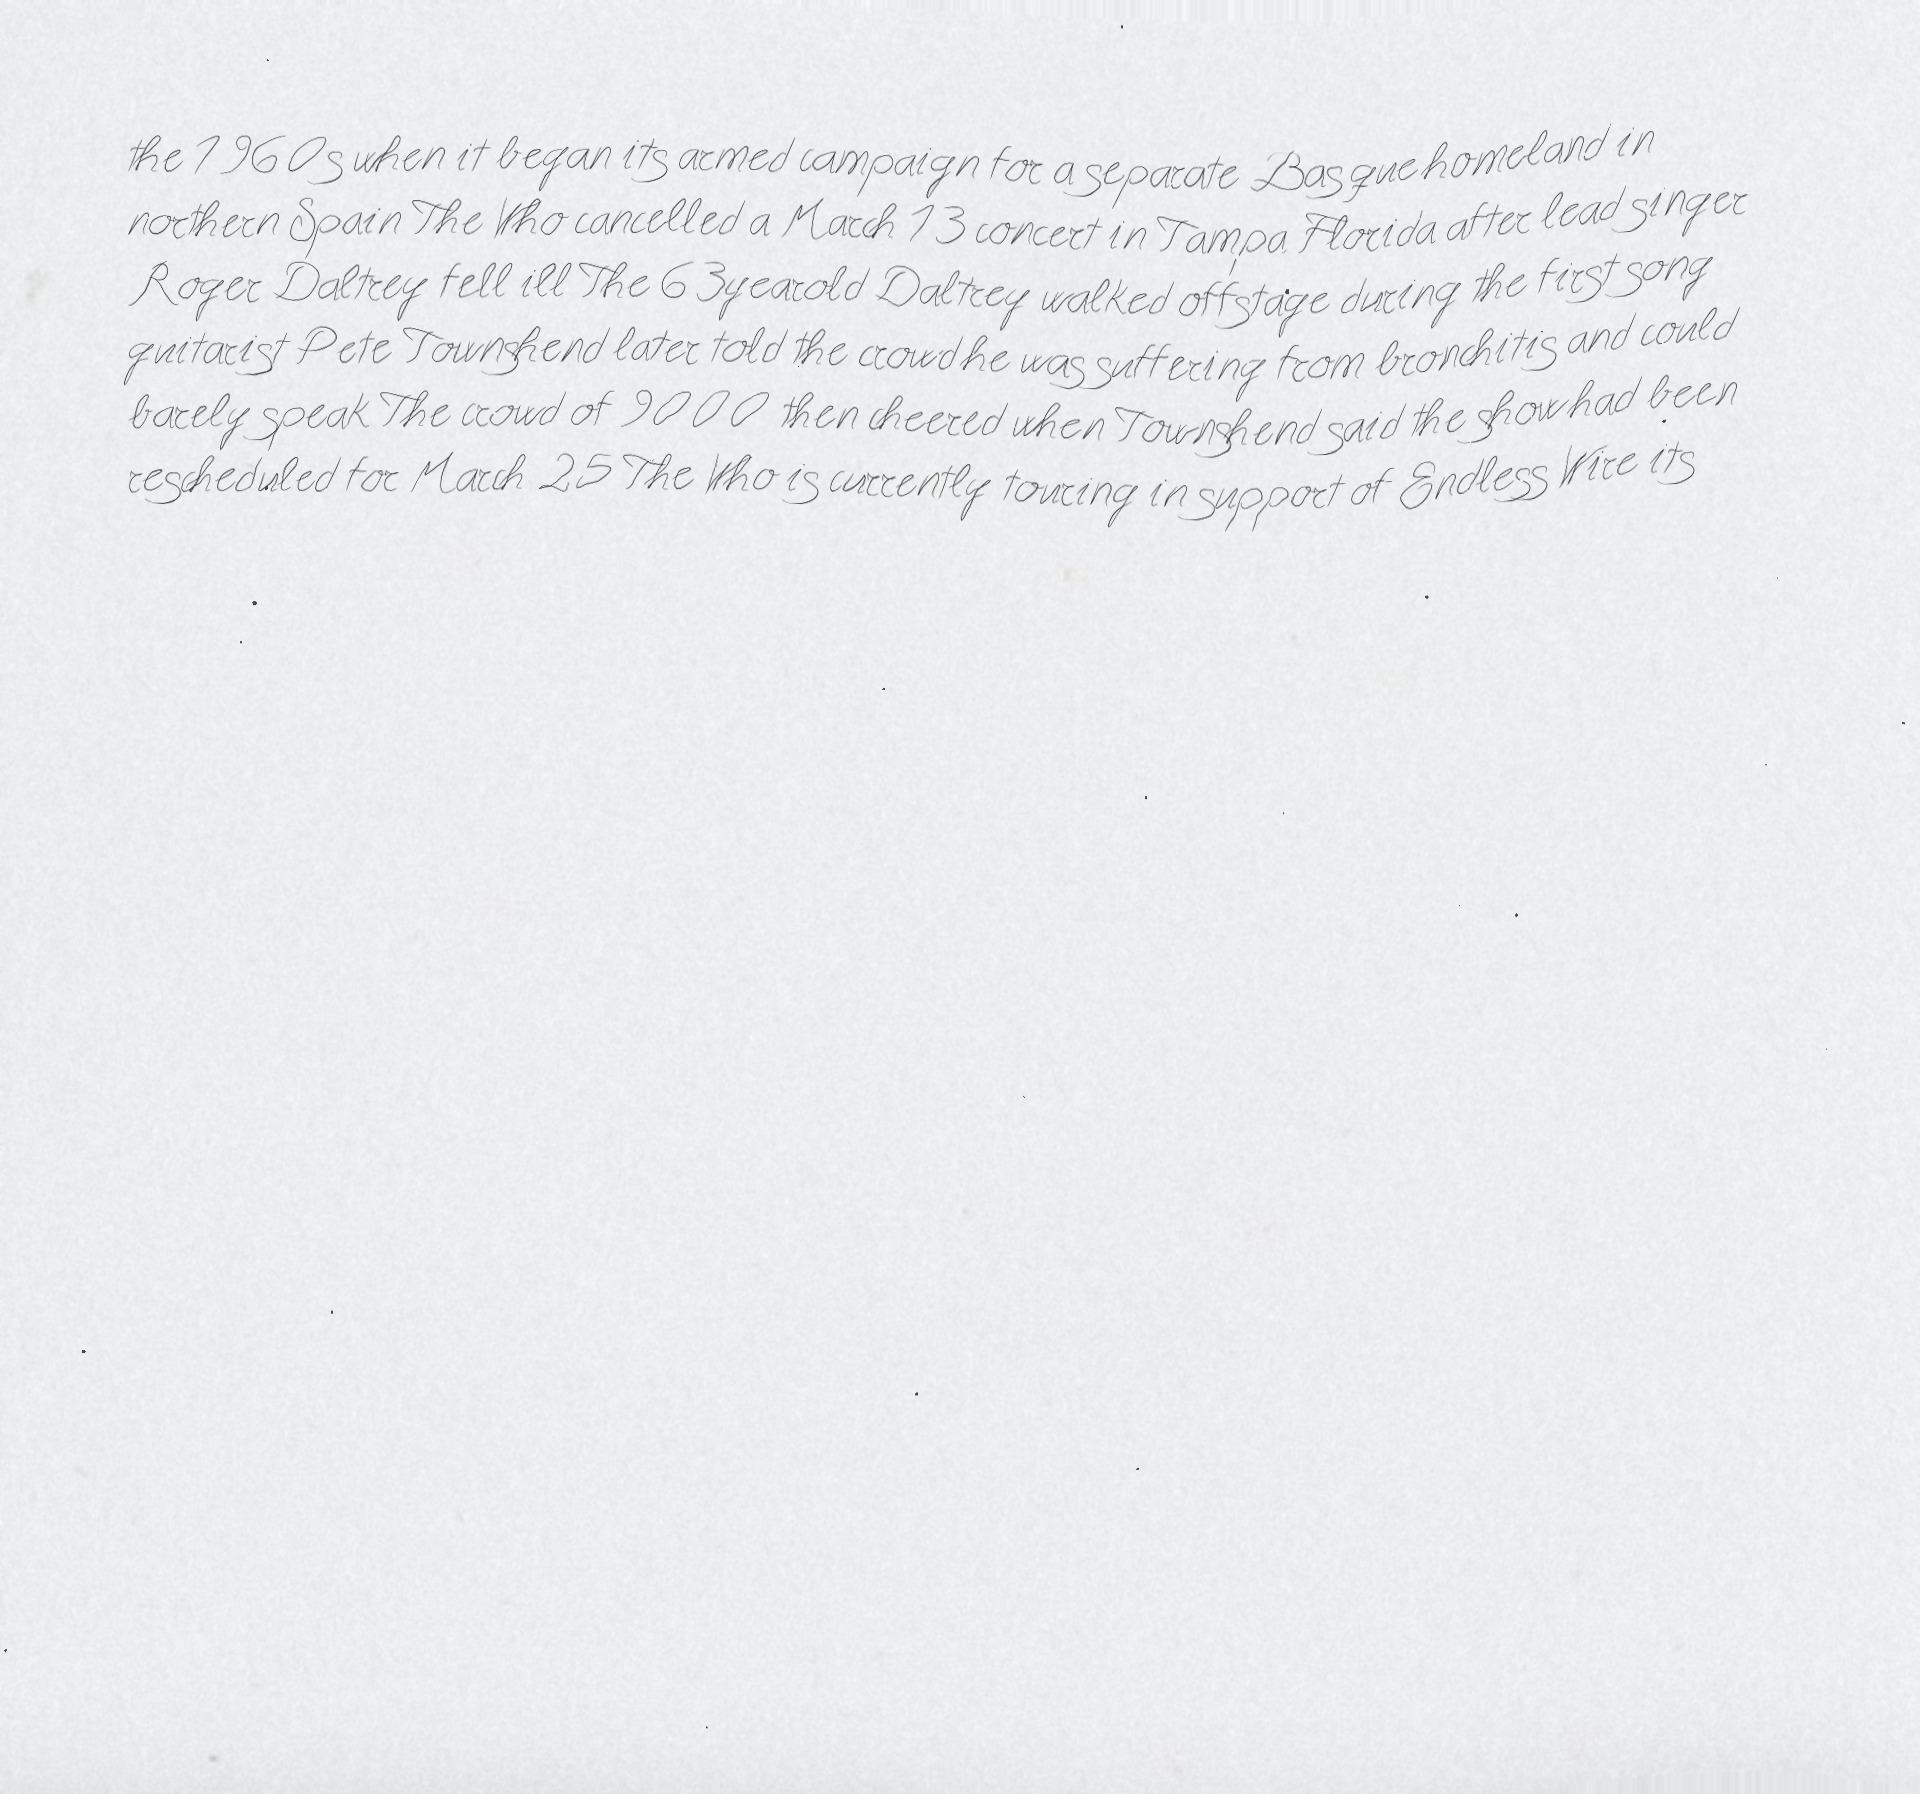 the 1960s when it began its armed campaign for a separate Basque homeland in
northern Spain The Who cancelled a March 13 concert in Tampa Florida after lead singer
Roger Daltrey fell ill The 63yearold Daltrey walked offstage during the first song
guitarist Pete Townshend later told the crowd he was suffering from bronchitis and could
barely speak The crowd of 9000 then cheered when Townshend said the show had been
rescheduled for March 25 The Who is currently touring in support of Endless Wire its